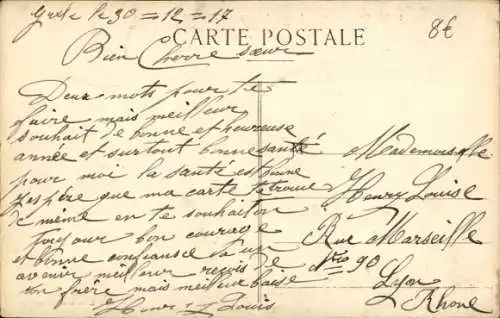 le 30=12=17
8€
CARTE POSTALE
Bien Cherre sœur
Deux mots pour te
faire mais meilleur
souhait de bonne et heureuse
année et surtout bonne santé
pour moi la santé est bonne
j'espère que ma carte te trouve
de même en te souhaiton
toujour bon courage
et bonne confiance a un
avenir meilleur reçois de
ton frère mais meilleur baisé
Henry Louis
Mademoiselle
Henry Louise
Rue Marseille
Nro 90
Lyon
Rhone